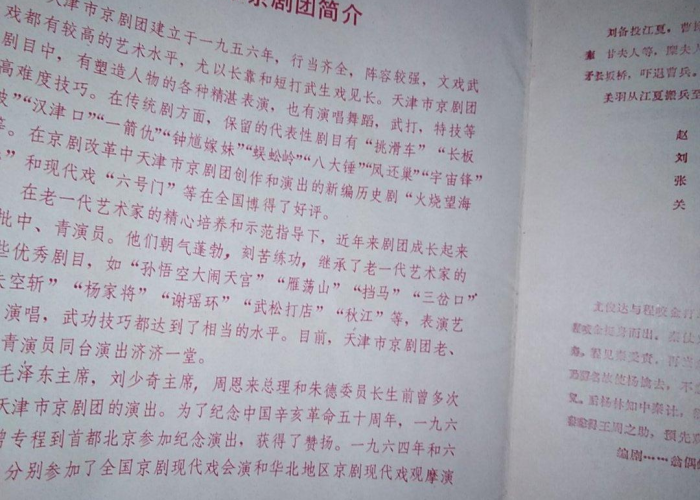 京剧团简介
天津市京剧团建立于一九五六年，行当齐全，阵容较强，文戏武
戏都有较高的艺术水平，尤以长靠和短打武生戏见长。天津市京剧团
剧目中，有塑造人物的各种精湛表演，也有演唱舞蹈，武打，特技等
高难度技巧。在传统剧方面，保留的代表性剧目有“挑滑车”“长板
坡”“汉津口”“一箭仇”“钟馗嫁妹”“蜈蚣岭”“八大锤”“凤还巢”“宇宙锋”
等。在京剧改革中天津市京剧团创作和演出的新编历史剧“火烧望海
”和现代戏“六号门”等在全国博得了好评。
在老一代艺术家的精心培养和示范指导下，近年来剧团成长起来
批中、青演员。他们朝气蓬勃，刻苦练功，继承了老一代艺术家的
些优秀剧目，如“孙悟空大闹天宫”“雁荡山”“挡马”“三岔口”
失空斩”“杨家将”“谢瑶环”“武松打店”“秋江”等，表演艺
演唱，武功技巧都达到了相当的水平。目前，天津市京剧团老、
青演员同台演出济济一堂。
毛泽东主席，刘少奇主席，周恩来总理和朱德委员长生前曾多次
天津市京剧团的演出。为了纪念中国辛亥革命五十周年，一九六
曾专程到首都北京参加纪念演出，获得了赞扬。一九六四年和六
分别参加了全国京剧现代戏会演和华北地区京剧现代戏观摩演
刘备投江夏，曹
甘夫人等，糜夫
板桥，吓退曹兵，
关羽从江夏搬兵至
赵
刘
张
关
尤俊达与程咬金
王周之助，预先
编剧……翁偶